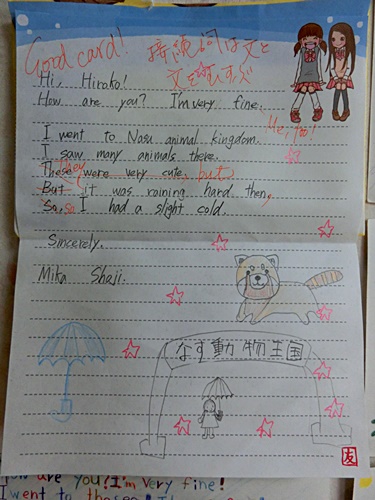 Good card! 接続詞は文と
文をむすぶ
Hi, Hiroko!
How are you? I'm very fine.
Me, too!
I went to Nasu animal kingdom.
I saw many animals there.
They
These were very cute. but
But it was raining hard then,
So, so I had a slight cold.
Sincerely.
Mika Shoji.
なす動物王国
友
How are you? I'm very fine!
I went to